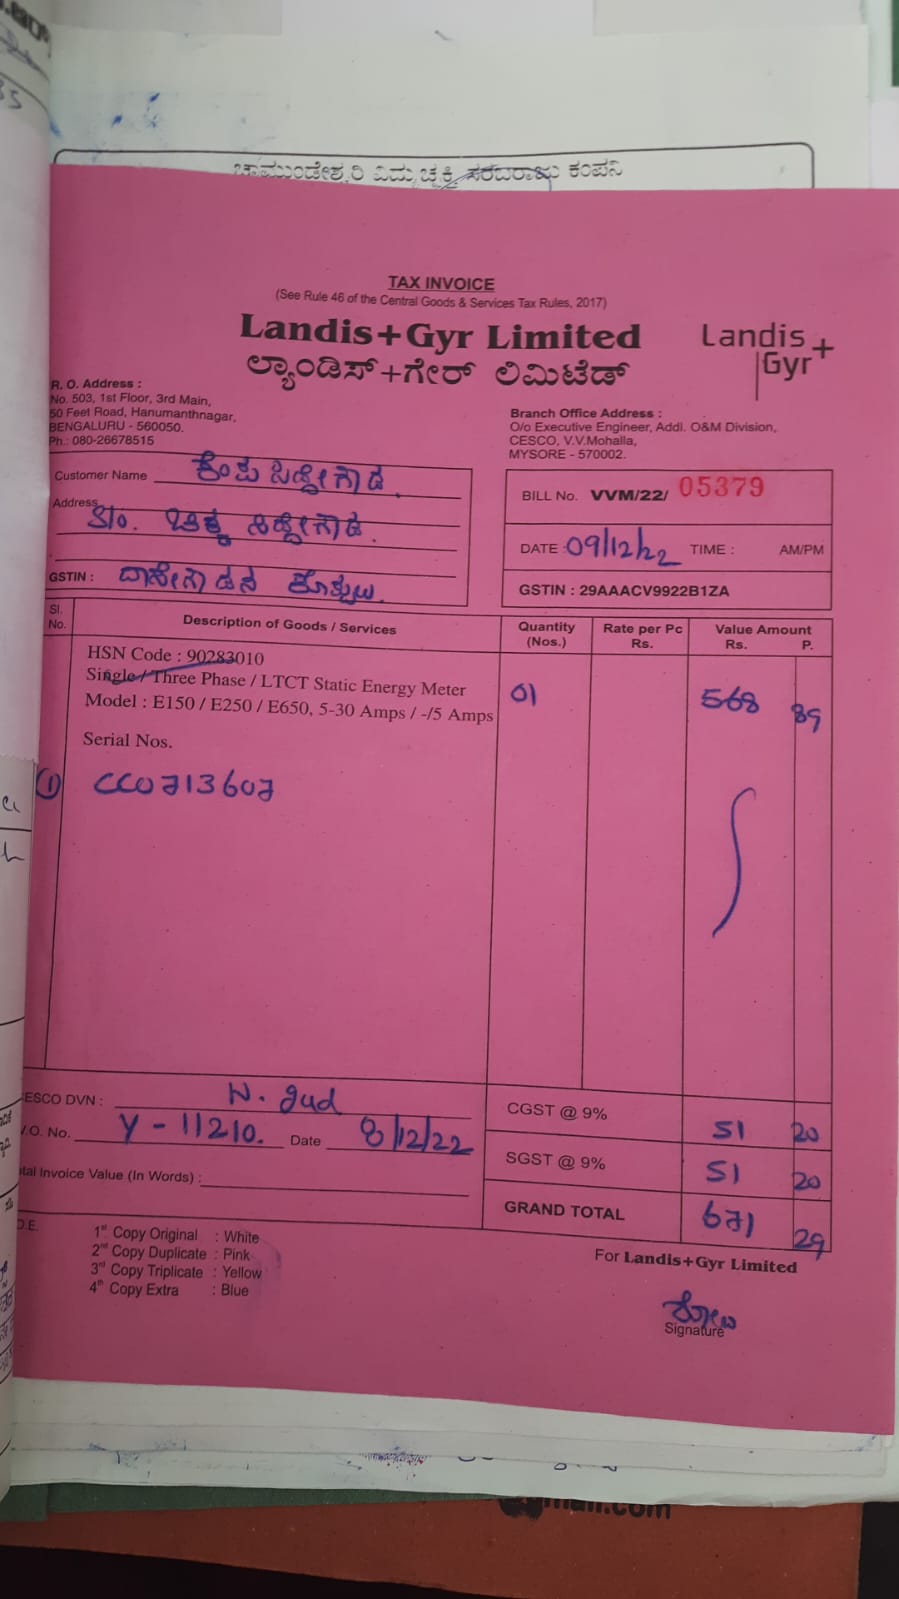 ಚಾಮುಂಡೇಶ್ವರಿ ವಿದ್ಯುಚ್ಛಕ್ತಿ ಸರಬರಾಜು ಕಂಪನಿ
TAX INVOICE
(See Rule 46 of the Central Goods & Services Tax Rules, 2017)
Landis+Gyr Limited
ಲ್ಯಾಂಡಿಸ್+ಗೇರ್ ಲಿಮಿಟೆಡ್
Landis+
Gyr
R. O. Address :
No. 503, 1st Floor, 3rd Main,
50 Feet Road, Hanumanthnagar,
BENGALURU - 560050.
Ph.: 080-26678515
Branch Office Address :
O/o Executive Engineer, Addl. O&M Division,
CESCO, V.V.Mohalla,
MYSORE - 570002.
Customer Name ಕೆಂಪಸಿದ್ದೇಗೌಡ.
Address S/o. ಚಿಕ್ಕಸಿದ್ದೇಗೌಡ.
GSTIN : ದಾಸೇಗೌಡನ ಕೊಪ್ಪಲು.
BILL No. VVM/22/ 05379
DATE : 09/12/22 TIME : AM/PM
GSTIN : 29AAACV9922B1ZA
Sl. No. Description of Goods / Services Quantity (Nos.) Rate per Pc Rs. Value Amount Rs. P.
HSN Code : 90283010
Single / Three Phase / LTCT Static Energy Meter 01 568 89
Model : E150 / E250 / E650, 5-30 Amps / -/5 Amps
Serial Nos.
① CC0713607
ESCO DVN : N. gud
.O. No. Y - 11210. Date 8/12/22
tal Invoice Value (In Words) :
CGST @ 9% 51 20
SGST @ 9% 51 20
GRAND TOTAL 671 29
O.E.
1st Copy Original : White
2nd Copy Duplicate : Pink
3rd Copy Triplicate : Yellow
4th Copy Extra : Blue
For Landis+Gyr Limited
Signature